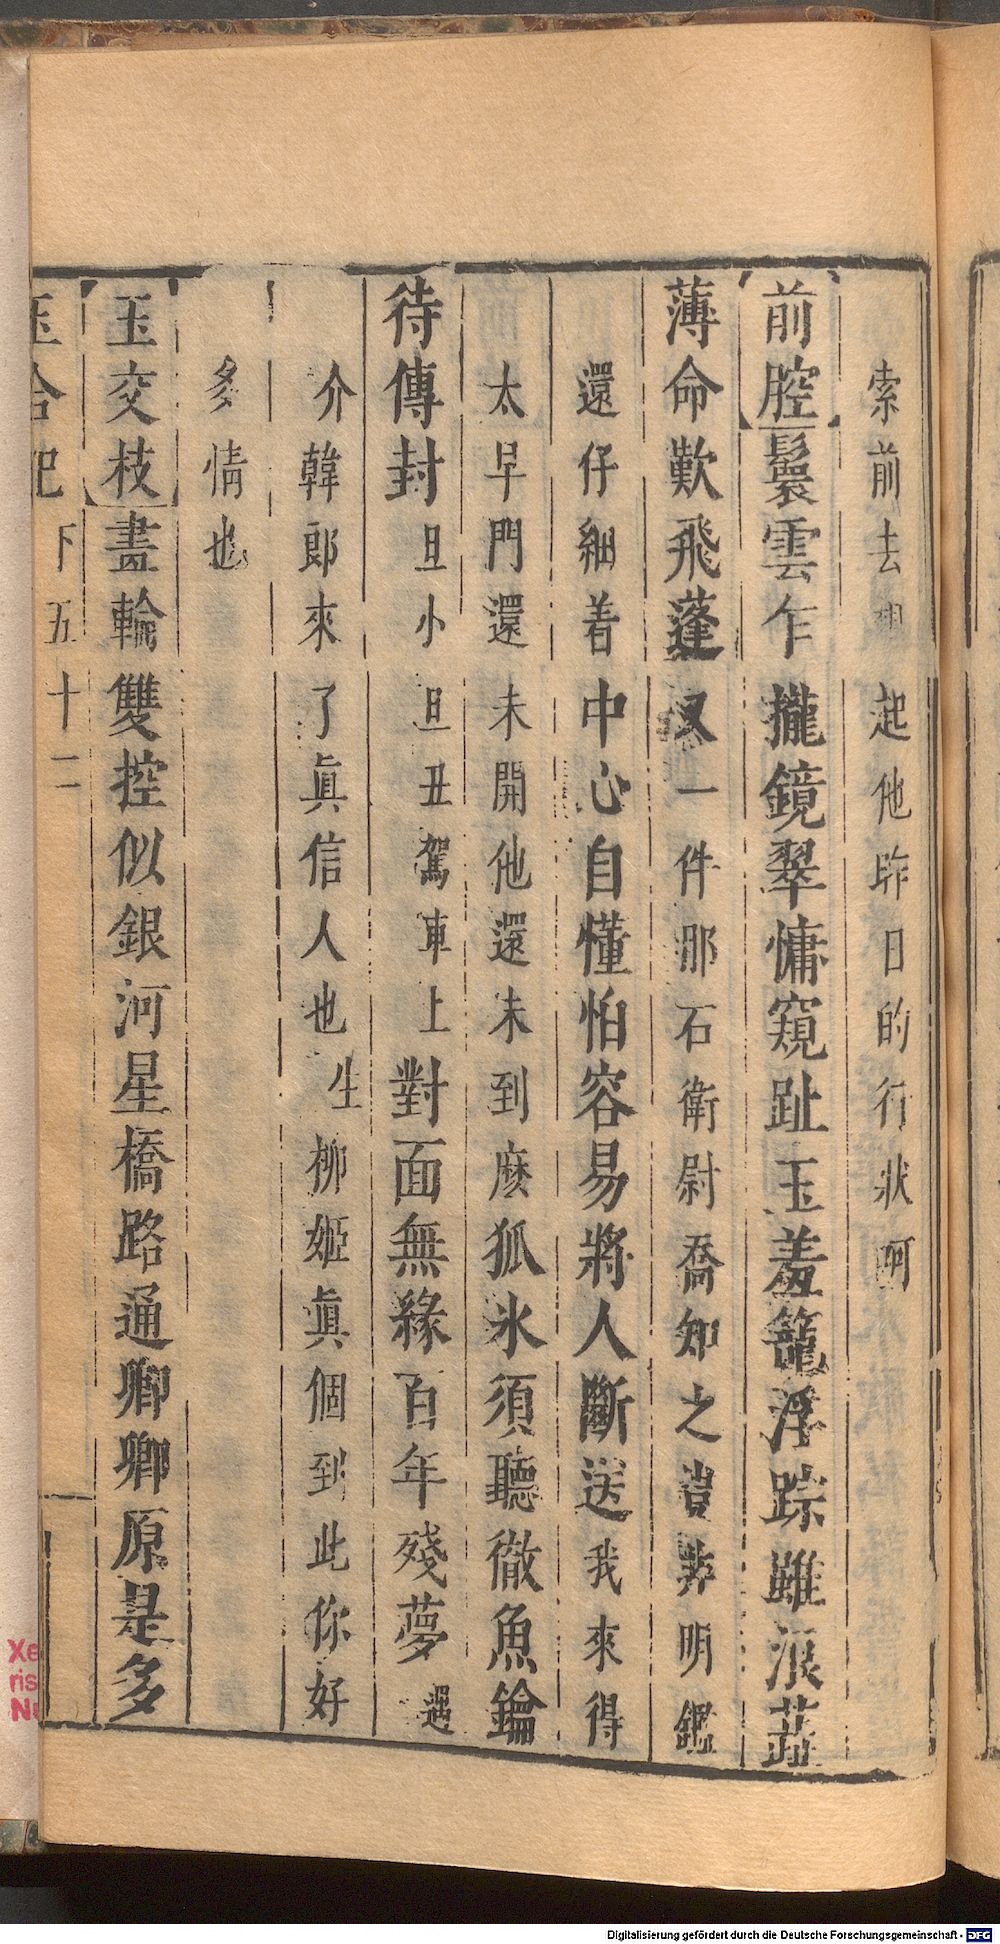 索前去想起他昨日的行狀呵
前腔鬟雲乍攏鏡翠慵窺趾玉羞籠浮踪雖浪蕋
薄命歎飛蓬又一件那石衛尉喬知之豈非明鑑
還仔細着中心自懂怕容易將人斷送我來得
太早門還未開他還未到麽狐氷須聽徹魚鑰
待傳封旦小旦丑駕車上對面無緣百年殘夢遇
介韓郎來了眞信人也生柳姬眞個到此你好
多情也
玉交枝畫輪雙控似銀河星橋路通卿卿原是多
玉合記 下 五十二
Xe
ris
Nu
Digitalisierung gefördert durch die Deutsche Forschungsgemeinschaft - DFG